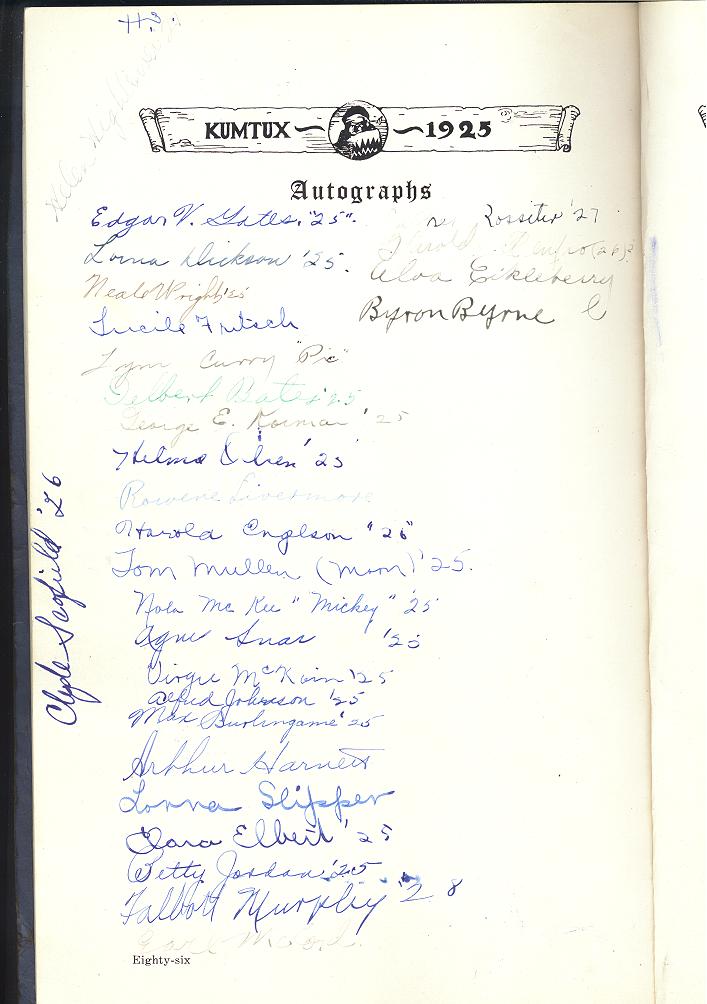 KUMTUX 1925
Autographs
Edgar V. Yates. "25".
Lorna Dickson '25.
Neale Wright '25
Lucile Fritsch
Lynn Curry "Pic"
Delbert Bates '25
George E. Korman '25
Helma Olsen '25
Rowene Livermore
Harold Englson "26"
Tom Mullen (Moon) '25.
Nola Mc Kee "Mickey" '25
Agnes '25
Virgie McKain '25
Alfred Johnson '25
Max Burlingame '25
Arthur Harnett
Lorna Slipper
Clara Elbert '25
Betty Jordan '25
Talbott Murphy '28
Rossiter '27
Harold (26)
Alva Eikleberry
Byron Byrne
Clyde '26
Helen
Eighty-six